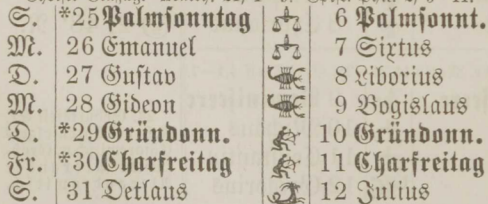 S. *25 Palmsonntag 6 Palmsonnt.
M. 26 Emanuel 7 Sixtus
D. 27 Gustav 8 Liborius
M. 28 Gideon 9 Bogislaus
D. *29 Gründonn. 10 Gründonn.
Fr. *30 Charfreitag 11 Charfreitag
S. 31 Detlaus 12 Julius